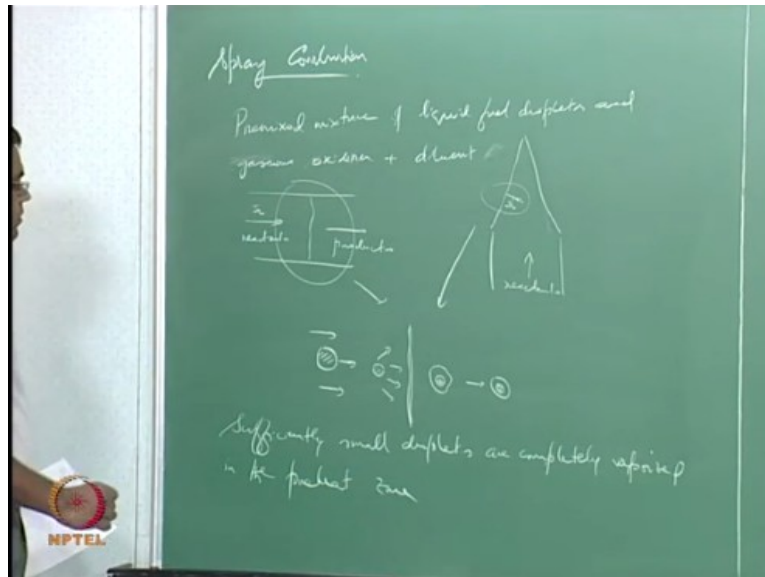 Spray Combustion
Premixed mixture of liquid fuel droplets and
gaseous oxidiser + diluent
reactants
products
reactants
Sufficiently small droplets are completely vaporized
in the preheat zone
NPTEL